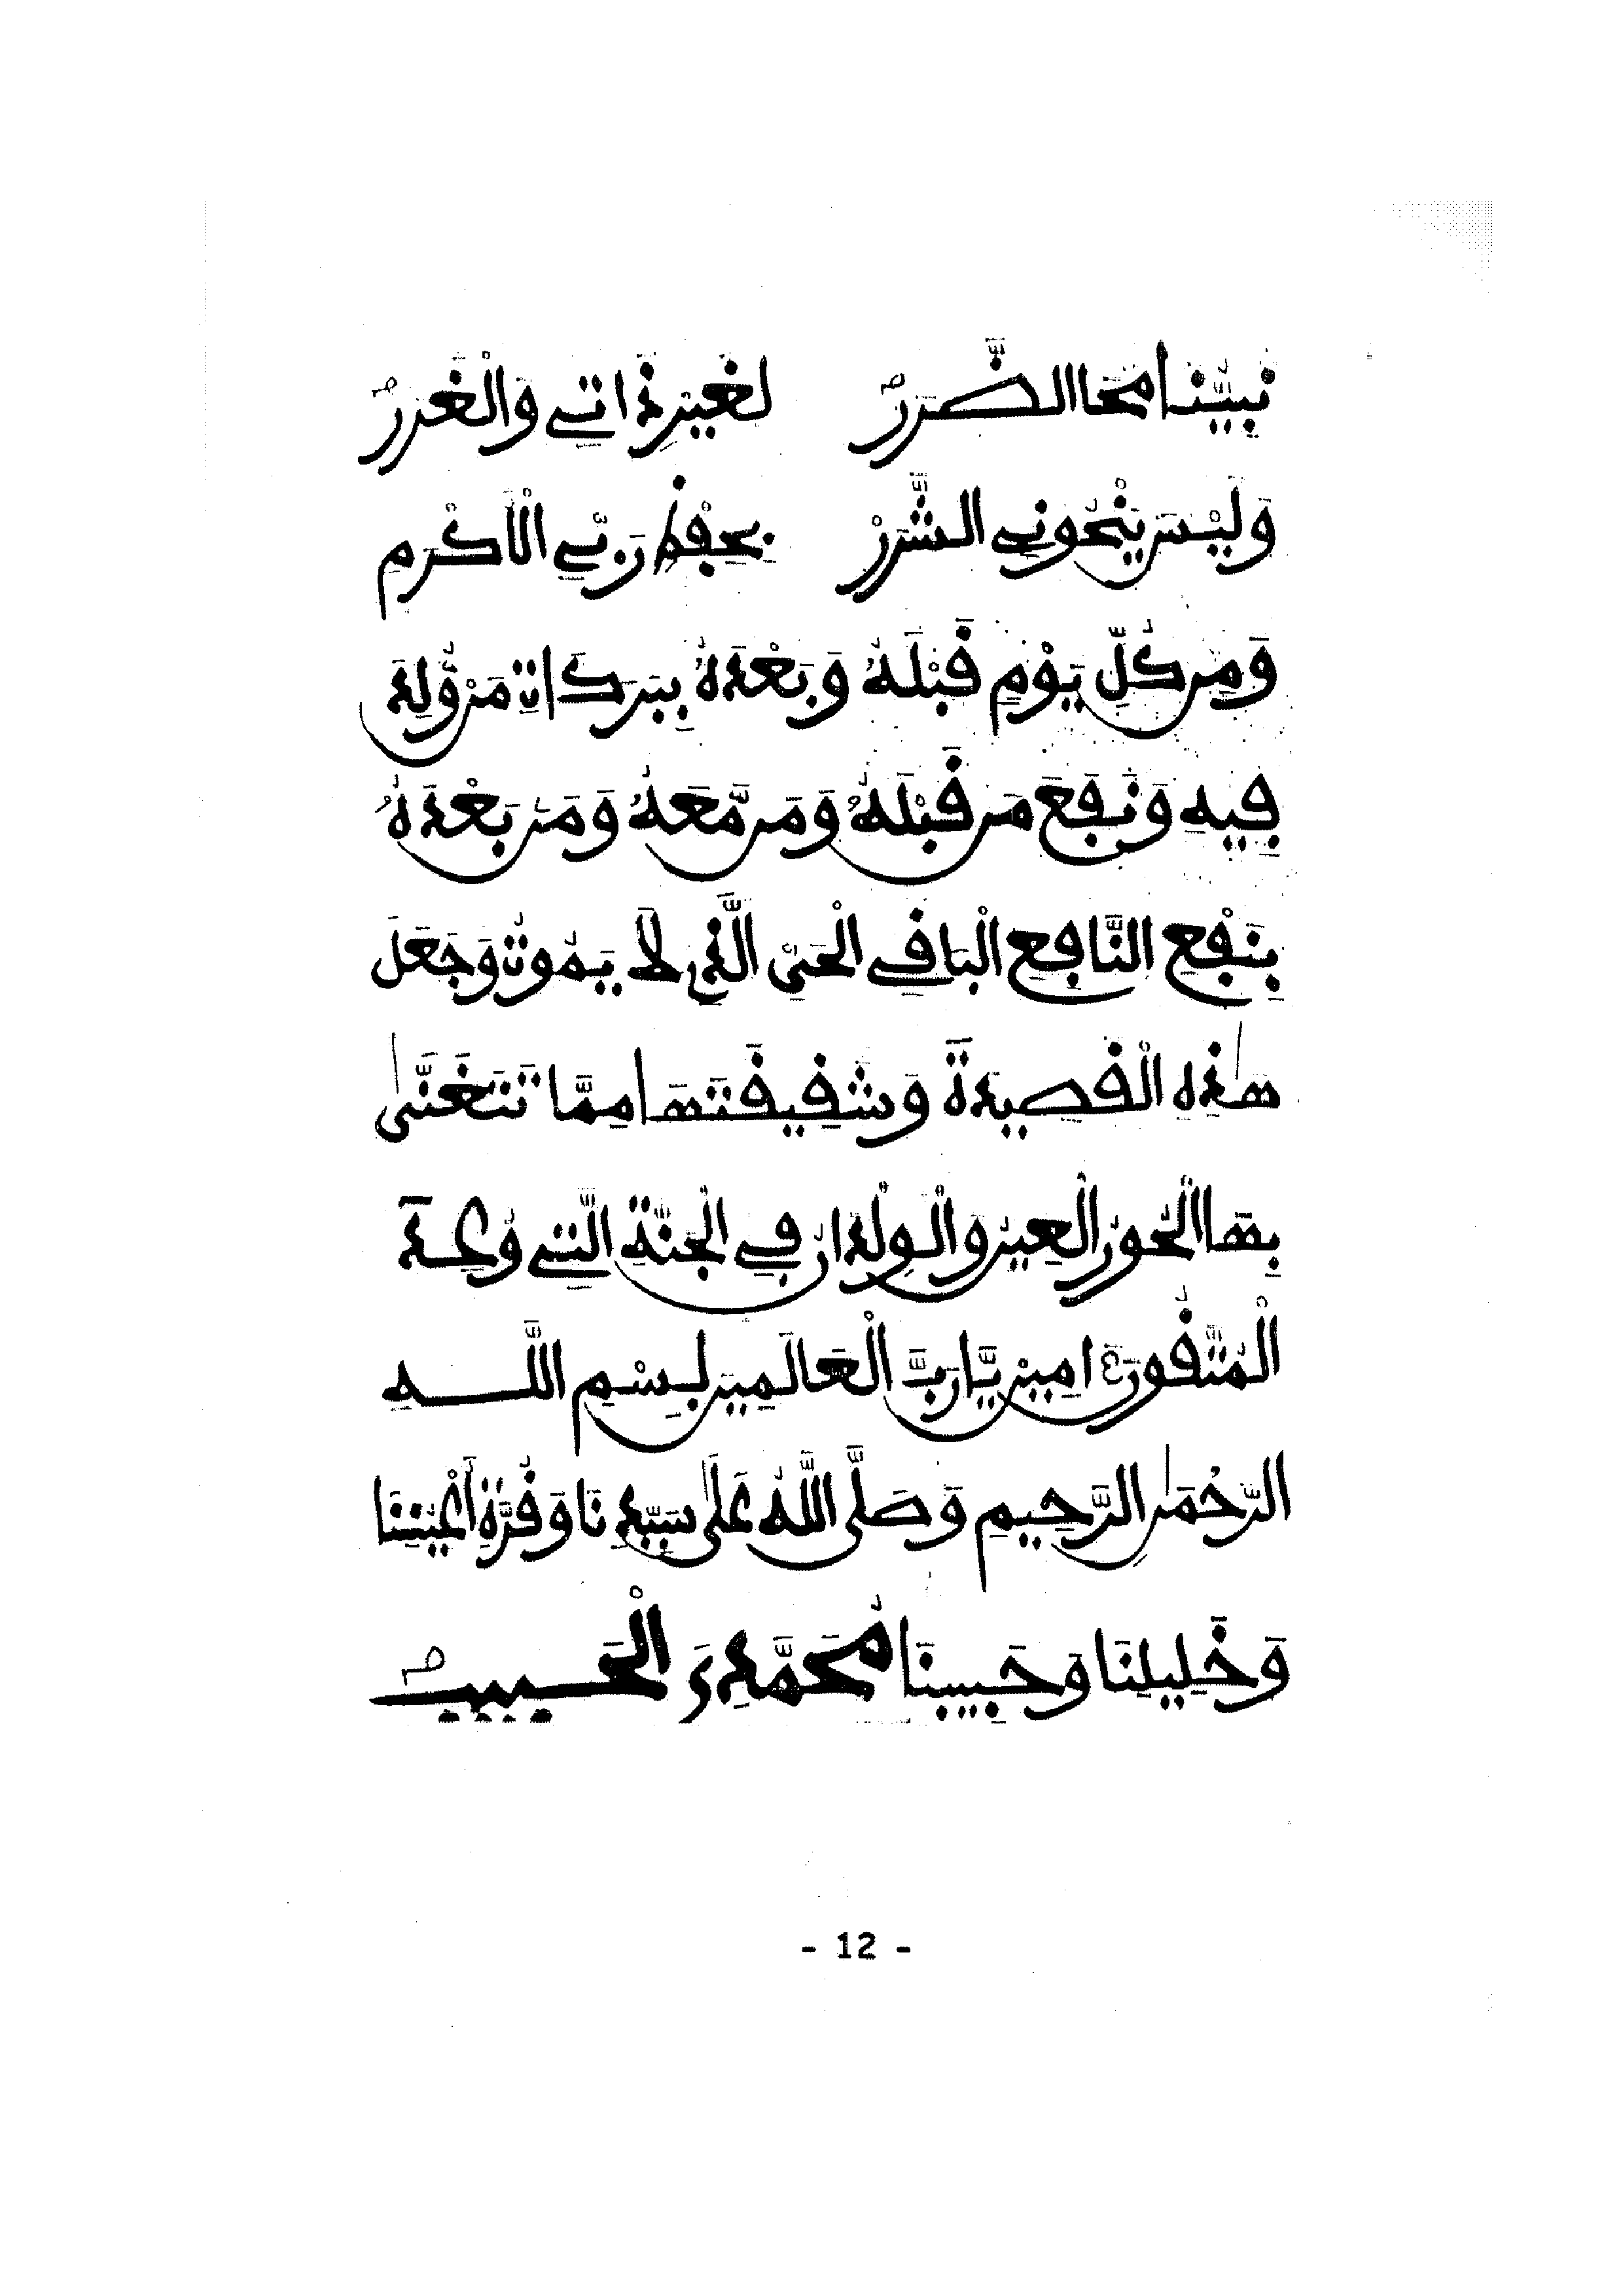 نَبِيُّنَا مَحَا الضَّرَرْ لِغَيْرِ ذَاتِي وَالْغَرَرْ
وَلَيْسَ يَنْحُونِي الشَّرَرْ بِحِفْظِ رَبِّي الْأَكْرَمِ
وَمِن كُلِّ يَوْمٍ قَبْلَهُ وَبَعْدَهُ بِبَرَكَاتِ مَن وُلِدَ
فِيهِ وَنَفَعَ مَن قَبْلَهُ وَمَن مَّعَهُ وَمَن بَعْدَهُ
بِنَفْعِ النَّافِعِ الْبَاقِي الْحَيِّ الَّذِي لَا يَمُوتُ وَجَعَلَ
هَٰذِهِ الْقَصِيدَةَ وَشَقِيقَتَهَا مِمَّا تَتَغَنَّى
بِهَا الْحُورُ الْعِينُ وَالْوِلْدَانُ فِي الْجَنَّةِ الَّتِي وُعِدَ
الْمُتَّقُونَ ءَامِينَ يَا رَبَّ الْعَالَمِينَ بِسْمِ اللَّهِ
الرَّحْمَٰنِ الرَّحِيمِ وَصَلَّى اللَّهُ عَلَى سَيِّدِنَا وَقُرَّةِ أَعْيُنِنَا
وَخَلِيلِنَا وَحَبِيبِنَا مُحَمَّدٍ الْحَبِيبْ
- 12 -